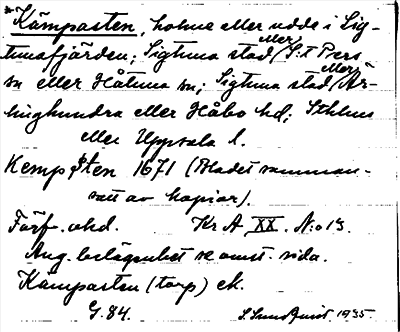 *Kämpasten, holme eller udde i Sig-
tunafjärden; Sigtuna stad eller S:t Pers
sn eller Håtuna sn; Sigtuna stad eller Är-
linghundra eller Håbo hd; Sthlms
eller Uppsala l.
Kempsten 1671 (Bladet samman-
satt av kopior).
Förf. okd. Kr A XX. N:o 13.
Ang. belägenhet se omst. sida.
Kämpasten (torp) ek.
G. 84. S. Sundquist. 1935.